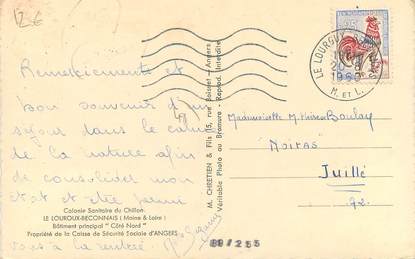 12€
Remerciements et
bon souvenir d'un
séjour dans le calme
de la nature afin
de consolider mon
état et être parmi
vous à la rentrée.
Colonie Sanitaire du Chillon
LE LOUROUX-BECONNAIS (Maine & Loire)
Bâtiment principal "Côté Nord"
Propriété de la Caisse de Sécurité Sociale d'ANGERS
M. CHRETIEN & Fils 15, rue Boisnet - Angers
Véritable Photo au Bromure - Reprod. Interdite
LE LOUROUX
M. ET L.
Mademoiselle
Boulay
Juillé
72.